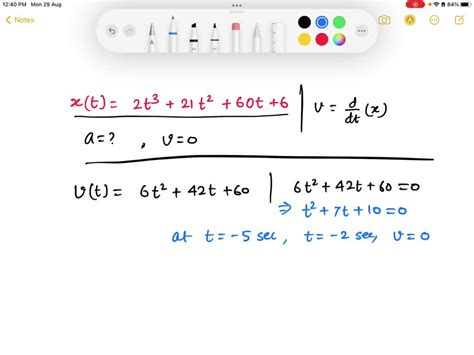 12:40 PM Mon 29 Aug
84%
Notes
x(t) = 2t³ + 21t² + 60t + 6 | v = d/dt (x)
a = ? , v = 0
v(t) = 6t² + 42t + 60 | 6t² + 42t + 60 = 0
⇒ t² + 7t + 10 = 0
at t = -5 sec, t = -2 sec, v = 0